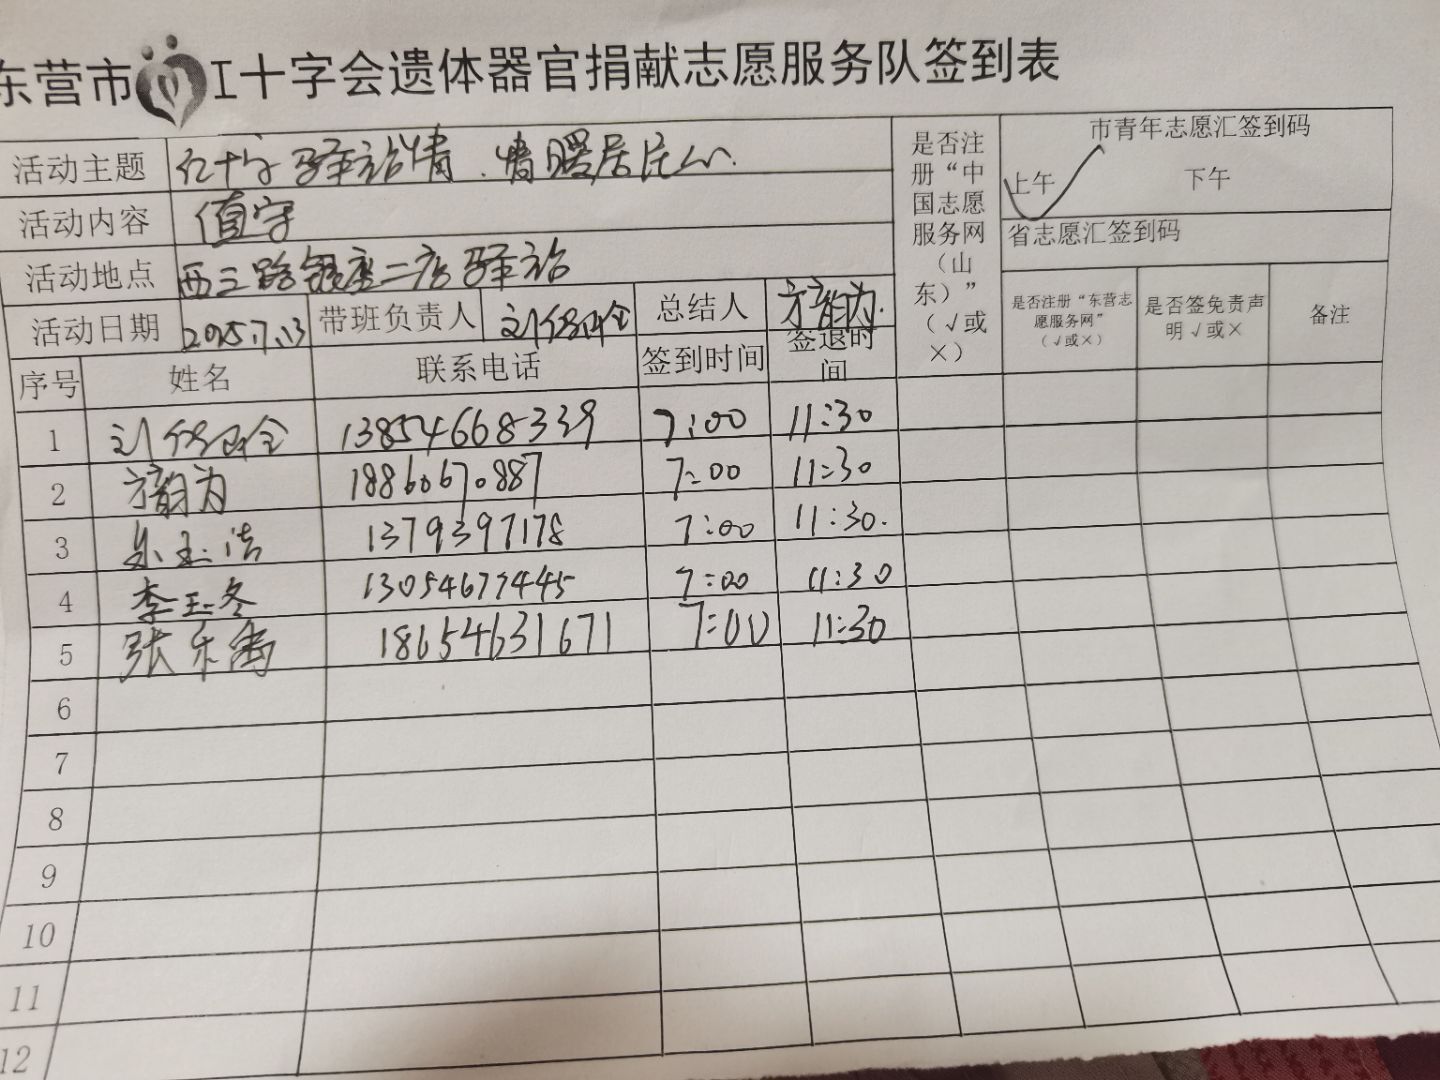 东营市 工十字会遗体器官捐献志愿服务队签到表
活动主题 红十字驿站情.情暖居民心.
活动内容 值守
活动地点 西三路银座二店驿站
活动日期 2025.7.13 带班负责人 总结人
序号 姓名 联系电话 签到时间 签退时间
是否注册“中国志愿服务网（山东）”（√或×）
市青年志愿汇签到码
上午 下午
省志愿汇签到码
是否注册“东营志愿服务网”（√或×） 是否签免责声明√或× 备注
1 13854668339 7:00 11:30
2 18860670887 7:00 11:30
3 1379397178 7:00 11:30.
4 李玉冬 13054677445 7:00 11:30
5 张乐禹 18654631671 7:00 11:30
6
7
8
9
10
11
12